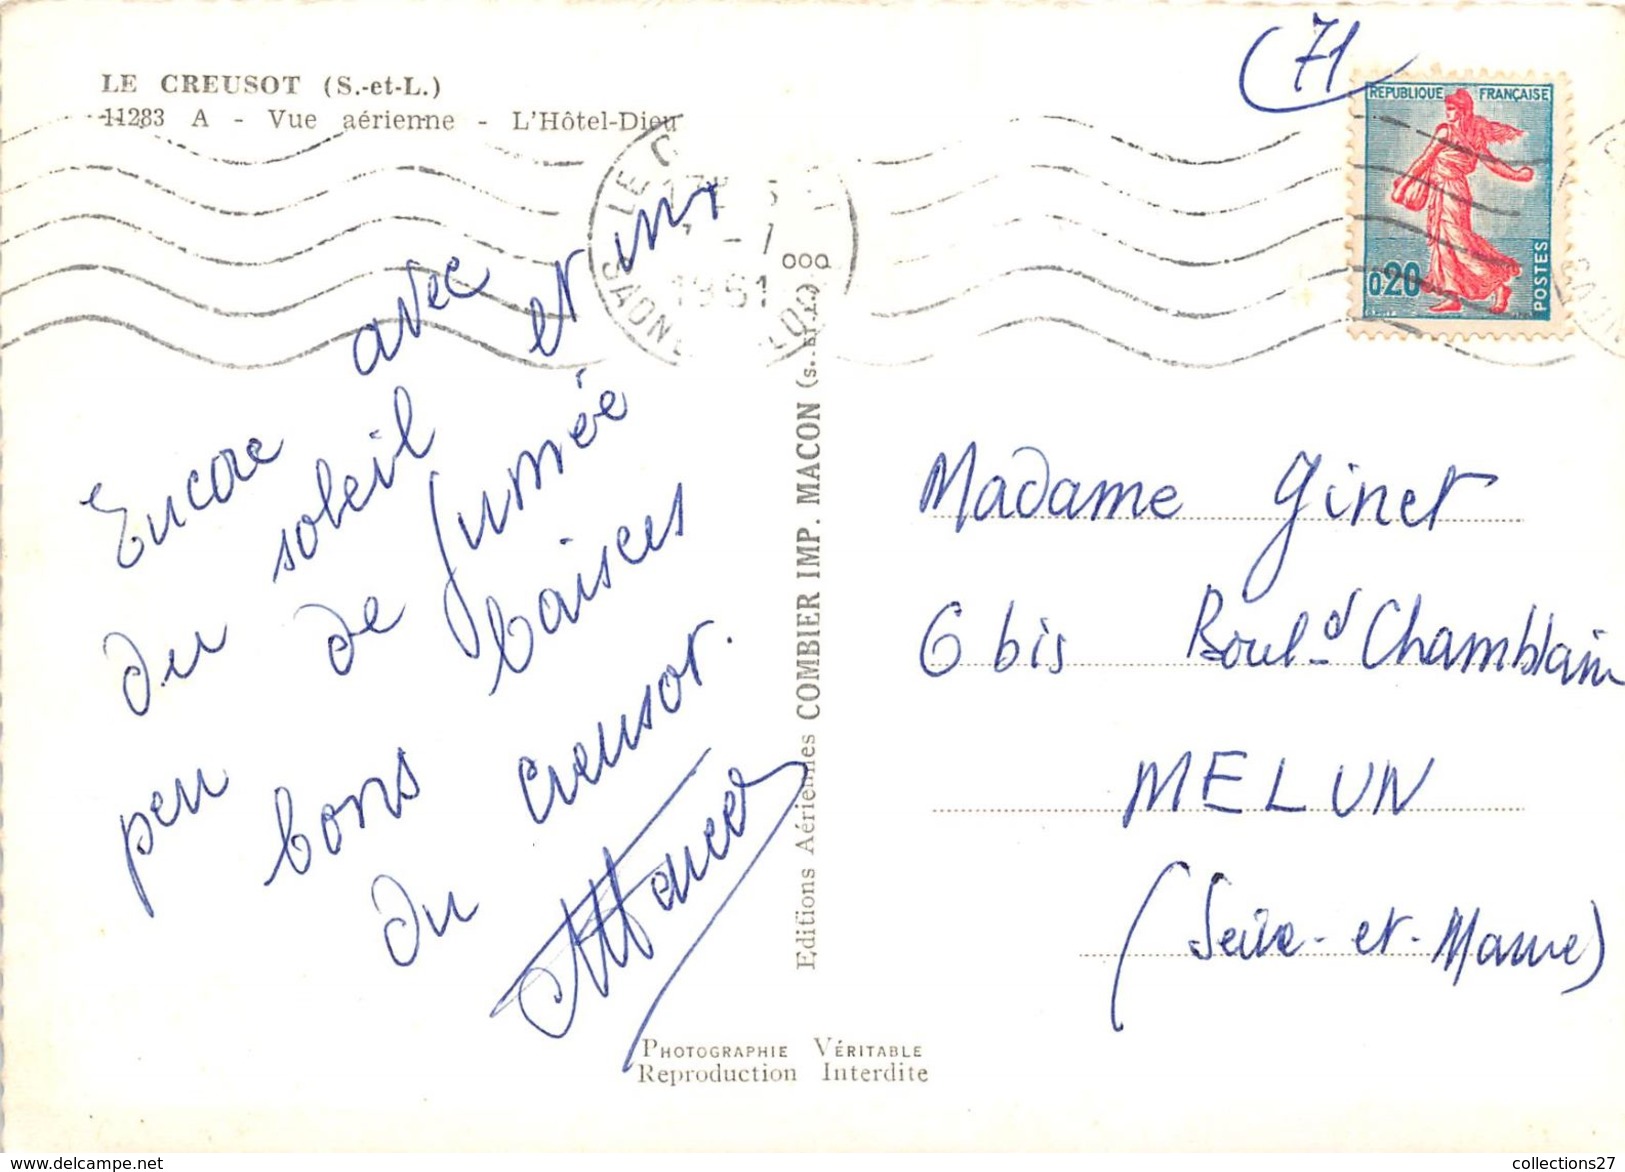 (71
LE CREUSOT (S.-et-L.)
11283 A - Vue aérienne - L'Hôtel-Dieu
REPUBLIQUE FRANÇAISE
0,20
POSTES
LE C
1961
SAONE
Encore avec
du soleil et un
peu de fumée
bons baisers
du Creusot.
Editions Aériennes COMBIER IMP. MACON (S.-et-L.)
Madame Ginet
6 bis Boul.d Chamblain
MELUN
(Seine-et-Marne)
PHOTOGRAPHIE VÉRITABLE
Reproduction Interdite
collections27